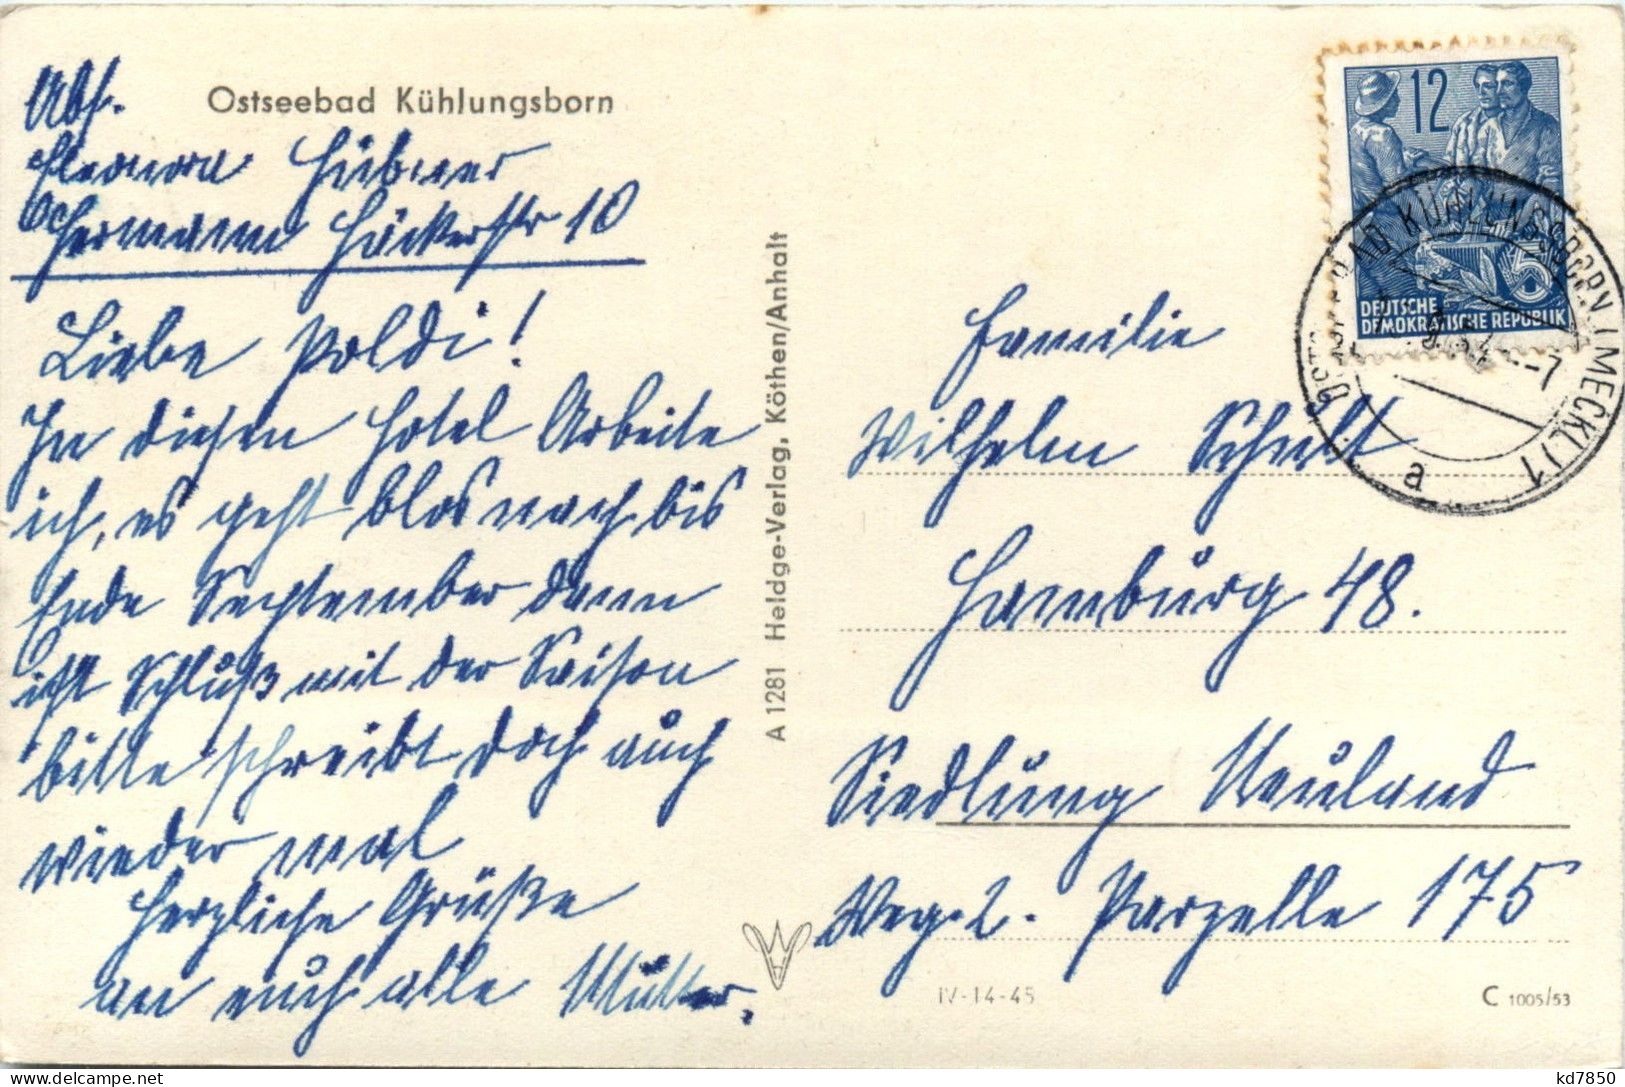 Ostseebad Kühlungsborn
Abs.
Eleonore Hübner
Hermann Häckerstr 10
Liebe Poldi!
In diesen Hotel Arbeite
ich, es geht blos noch bis
Ende September dann
ist Schluß mit der Saison
bitte schreibt doch auch
wieder mal
herzliche Grüße
an euch alle Mutter.
A 1281 Heldge-Verlag, Köthen/Anhalt
12
DEUTSCHE
DEMOKRATISCHE REPUBLIK
OSTSEEBAD KÜHLUNGSBORN (MECKL) 1
a
Familie
Wilhelm Schult
Hamburg 48.
Siedlung Neuland
Weg. 2. Parzelle 175
IV-14-45
C 1005/53
kd7850